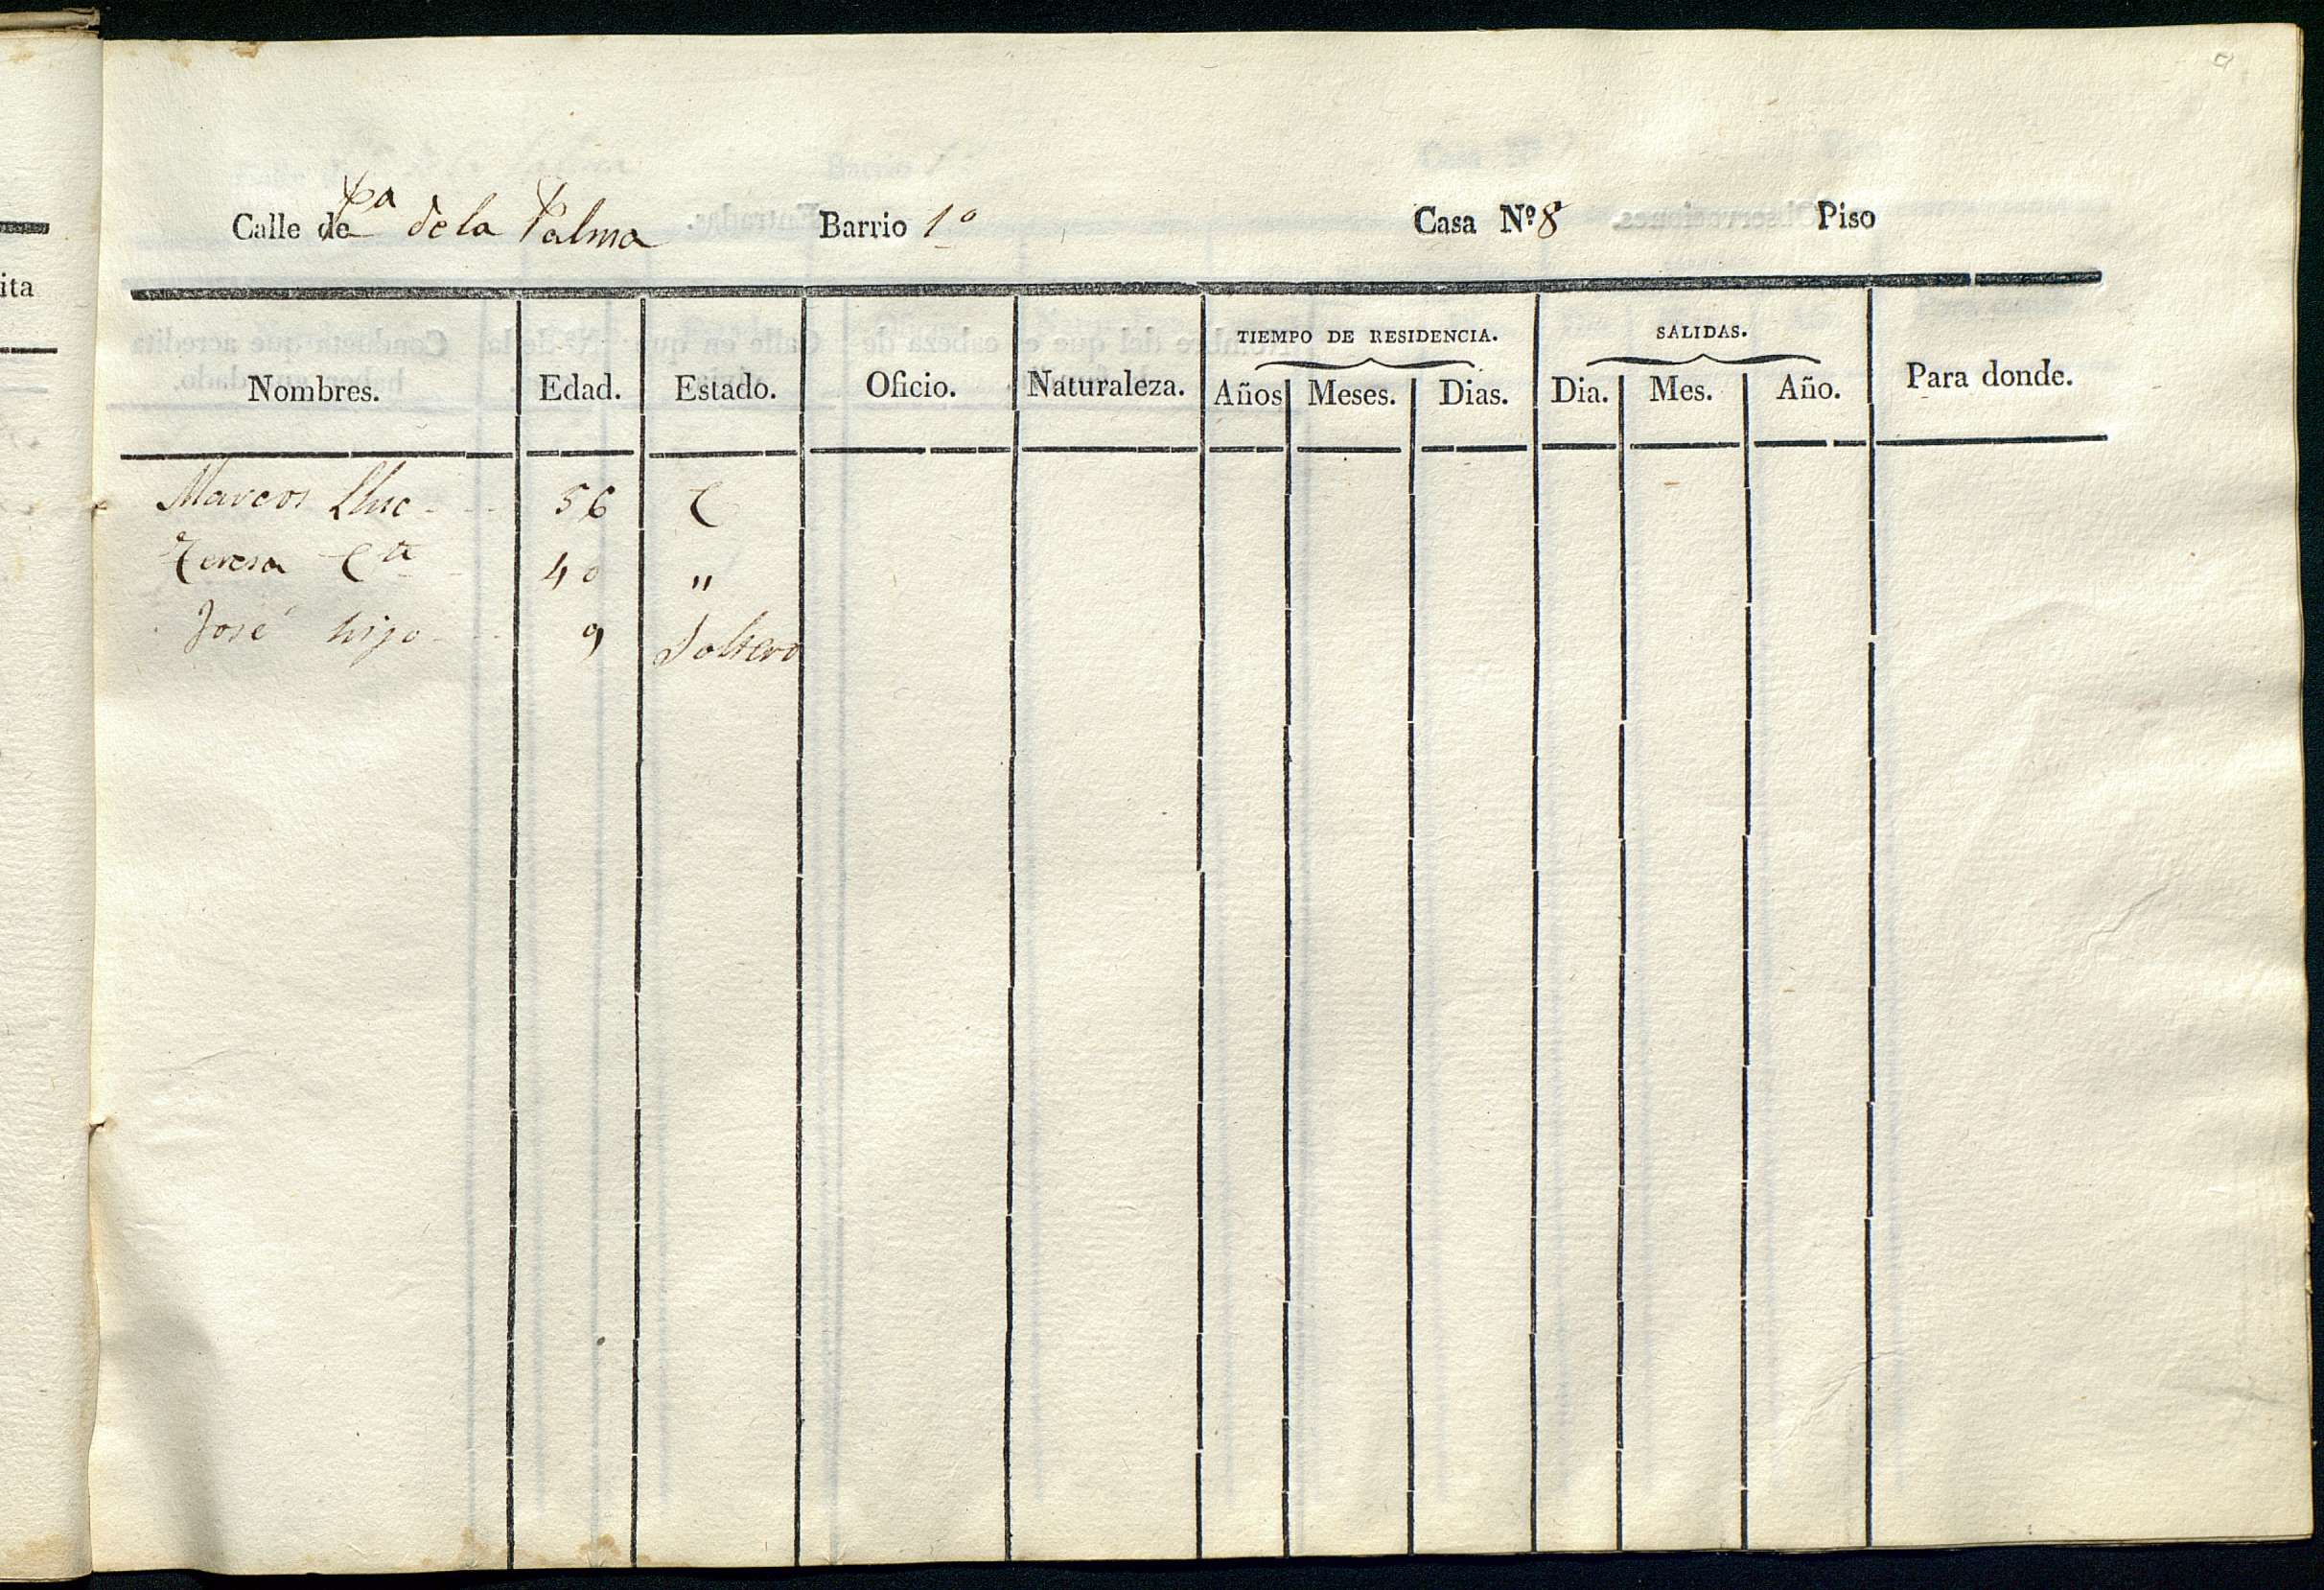 ita
Calle de Pa de la Palma Barrio 1º Casa Nº 8 Piso
TIEMPO DE RESIDENCIA. SALIDAS.
Nombres. Edad. Estado. Oficio. Naturaleza. Años Meses. Dias. Dia. Mes. Año. Para donde.
Marcos Lluc 56 C
Teresa Cta 40 "
José hijo 9 Soltero